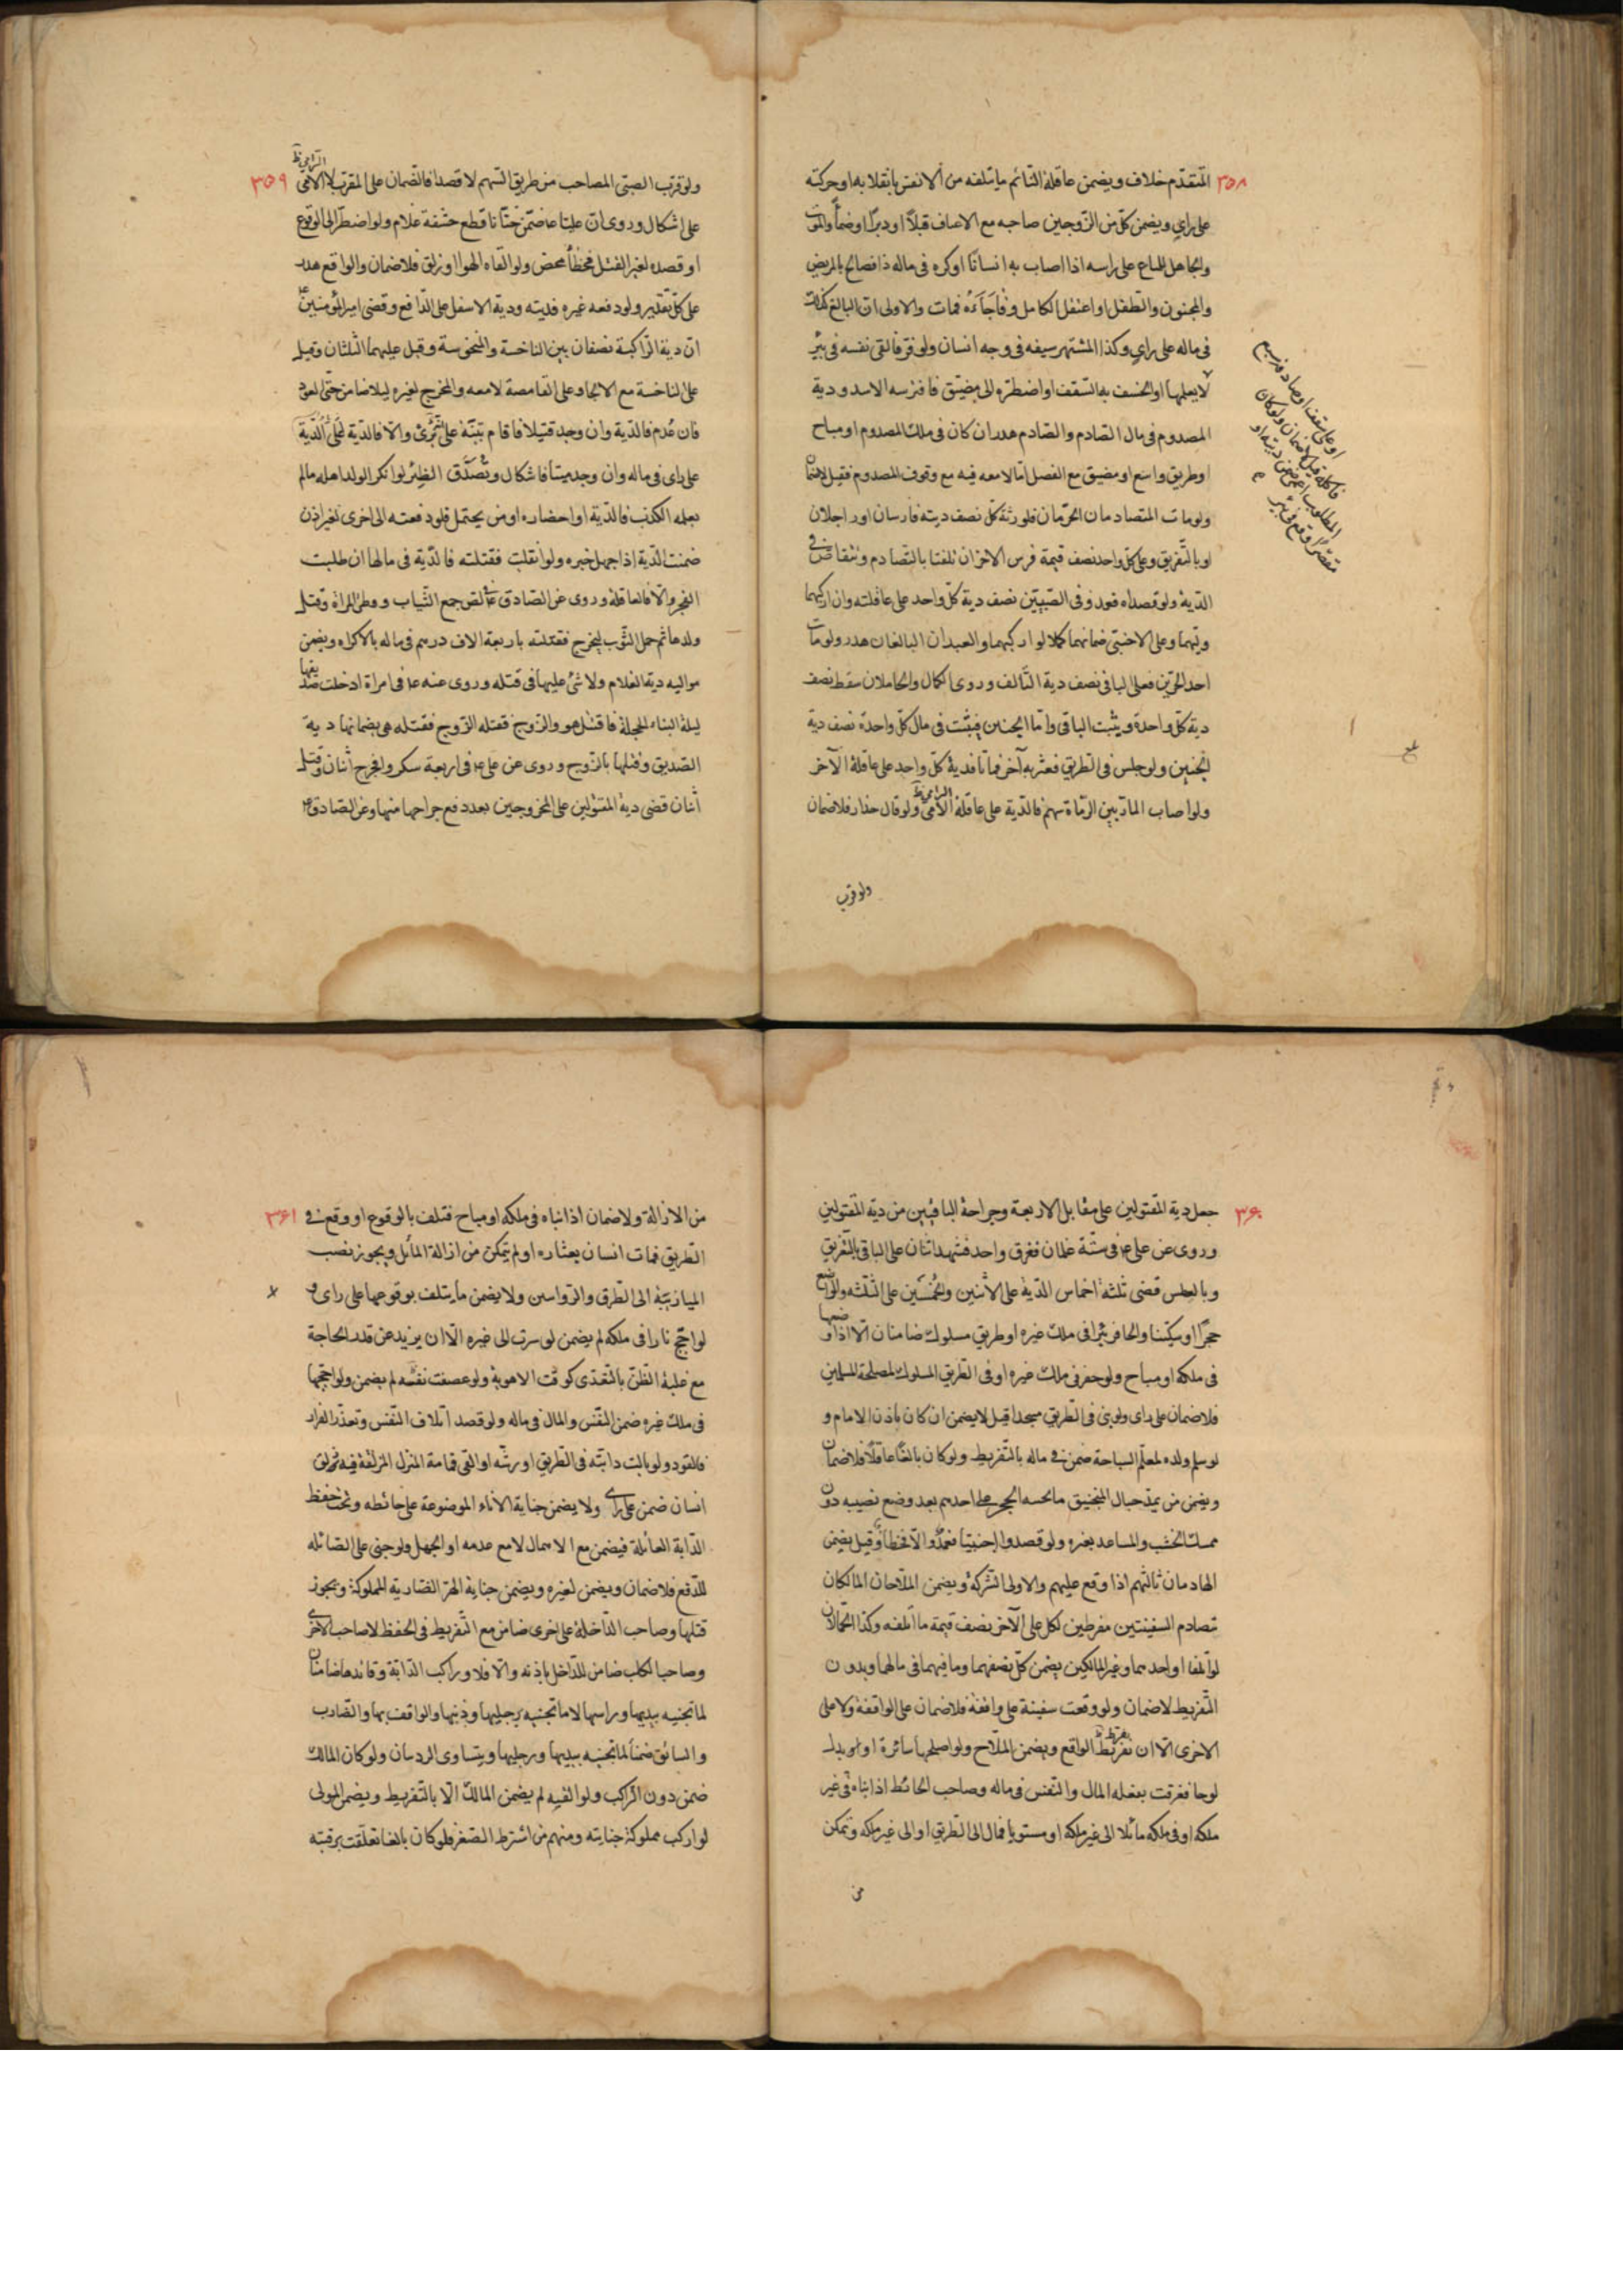 ٣٥٨
المتقدّم خلاف ويضمن عاقلة النّائم ما يتلفه من الانفس بانقلابه او حركته
على راي ويضمن كلّ من الزّوجين صاحبه مع الاعناف قبلاً او دبرًا او ضمًّا والموت
والحامل للمتاع على راسه اذا اصاب به انسانًا او كره فى ماله ذا فصائح بالمريض
والمجنون والطّفل او اغتفل الكامل وفاجأه فمات والاولى انّ البالغ كذلك
فى ماله على راي وكذا المشتهر سيفه فى وجه انسان ولو فرّ فالقى نفسه فى بئر
لا يعلمها او انخسف به السّقف او اضطرّه الى مضيّق فافترسه الاسد ودية
المصدوم فى مال الصّادم والصّادم هدر ان كان فى ملك المصدوم او مباح
او طريق واسع او مضيق مع الفصل امّا لا معه فيه مع وقوف المصدوم فقيل لا ضمان
ولو مات المتصادمان الحرّان فلورثة كلّ نصف ديته فارسان او راجلان
او بالتّفريق وعلى كلّ واحد نصف قيمة فرس الاخر ان تلفتا بالتّصادم ويتقاصّ فى
الدّية ولو قصداه فقود وفى الصّبيّين نصف دية كلّ واحد على عاقلته وان اركبهما
وليّهما وعلى الاجنبىّ ضمانهما كملا لو اركبهما والعبدان البالغان هدر ولو مات
احد الحرّين فعلى الباقى نصف دية التّالف وروى الكمال والحاملان سقط نصف
دية كلّ واحدة ويثبت الباقى وامّا الجنين فيثبت فى مال كلّ واحدة نصف دية
الجنين ولو جلس فى الطّريق فعثر به آخر فماتا فدية كلّ واحد على عاقلة الآخر
ولو اصاب المارّ بين الرّماة سهم فالدّية على عاقلة الامى الرامى ظ ولو قال حذار فلا ضمان
ولو قرب
او على سقف او صادفه سبع
فاكله قيل لا ضمان ولو كان
المطلوب اعمى ضمن ديته او
مبصرًا وقع فى بئر
٣٥٩
ولو قرّب الصبىّ المصاحب من طريق السّهم لا قصدا فالضّمان على المقرّب لا الامى الرامى ظ
على اشكال وروى انّ عليّا ع ضمّن ختّانا قطع حشفة غلام ولو اضطرّ الى الوقوع
او قصده لغير القتل فخطأ محض ولو القاه الهوا او زلق فلا ضمان والواقع هدر
على كلّ تقدير ولو دفعه غيره فديته ودية الاسفل على الدّافع وقضى امير المؤمنين ع
انّ دية الرّاكبة نصفان بين الناخسة والمنخوسة وقيل عليهما الثلثان وقيل
على الناخسة مع الالجاء وعلى القامصة لا معه والمخرج لغيره ليلا ضامن حتّى يعود
فان عُدم فالدّية وان وجد قتيلا فاقام بيّنة على تَبَرّىٔ والّا فالدّية
على راى فى ماله وان وجد ميتا فاشكال وتُصَدَّق الظئر لو انكر الولد اهله ما لم
يعلم الكذب فالدّية او احضاره او من يحتمل فلو دفعته الى اخرى لغير اذن
ضمنت الدّية اذا جهل خبره ولو انقلبت فقتلته فالدّية فى مالها ان طلبت
الفخر والّا فالعاقلة وروى عن الصّادق ع لصّ جمع الثّياب ووطئ المراة وقتل
ولدها ثم حمل الثّوب ليخرج فقتلته باربعة الاف درهم فى ماله بالاكراه ويضمن
مواليه دية الغلام ولا شئ عليها فى قتله وروى عنه ع فى امراة ادخلت صديقها
ليلة البناء للحجلة فاقتتل هو والزّوج فقتله الزّوج فقتلته هى بضمانها دية
الصّديق وقتلها بالزّوج وروى عن على ع فى اربعة سكر والجرح اثنان وقتل
اثنان قضى دية المقتولين على المجروحين بعد دفع جراحها منها وعن الصّادق ع
٣۶٠
جعل دية المقتولين على مقابل الاربعة وجراحة الباقيين من دية المقتولين
وروى عن على ع فى ستّة غلمان فغرق واحد فشهد اثنان على الباقى بالتّغريق
وبالعكس قضى ثلثة اخماس الدّية على الاثنين والخُمسَين على الثّلثة والواضع
حجرًا او سكّينا والحافر بئرا فى ملك غيره او طريق مسلوك ضامنان الّا اذا وضعها
فى ملكه او مباح ولو حفر فى ملك غيره او فى الطّريق المسلوك لمصلحة المسلمين
فلا ضمان على راى ولو بنى فى الطّريق مسجدا قيل لا يضمن ان كان باذن الامام و
لو سلم ولده لمعلّم السباحة ضمن فى ماله بالتّفريط ولو كان بالغًا عاقلًا فلا ضمان
ويضمن من يمدّ حبال المنجنيق ما يحسه الحجر على احدهم بعد وضع نصيبه دون
ممسك الخشب والمساعد بغيره ولو قصدوا اجنبيّا فعمدٌ والّا فخطأ وقيل يضمن
الهادمان ثالثهم اذا وقع عليهم والاولى الشّركة ويضمن الملّاحان المالكان
تصادم السفينتين مفرطين لكل على الآخر نصف قيمة ما اتلفه وكذا الحمّالان
لو اتلفا او احدهما وغير المالكين يضمن كلّ نصفهما وما فيهما فى مالهما وبدون
التّفريط لا ضمان ولو وقعت سفينة على واقفة فلا ضمان على الواقفة ولا على
الاخرى الّا ان تفرّط الواقع ويضمن الملّاح ولو اصلحها سائرة او ابدل
لوحا فغرقت بفعله المال والنّفس فى ماله وصاحب الحائط اذا بناه فى غير
ملكه او فى ملكه مائلا الى غير ملكه او مستويا فمال الى الطّريق او الى غير ملكه وتمكن
من
٣۶١
من الازالة ولا ضمان اذا بناه فى ملكه او مباح فتلف بالوقوع او وقع فى
الطّريق فمات انسان بعثاره او لم يتمكن من ازالة المائل ويجوز نصب
الميازيب الى الطّرق والرّواسن ولا يضمن ما يتلف بوقوعها على راى و
لو اجّج نارا فى ملكه لم يضمن لو سرت الى غيره الّا ان يزيد عن قدر الحاجة
مع غلبة الظنّ بالتّعدّى كوقت الاهوية ولو عصفت بغتة لم يضمن ولو اجّجها
فى ملك غيره ضمن النّفس والمال فى ماله ولو قصد اتلاف النّفس وتعذّر الفرار
فالقود ولو بالت دابته فى الطّريق او رشّه او القى قمامة المنزل المزلقة فيه فزلق
انسان ضمن على راى ولا يضمن جناية الاناء الموضوعة على حائطه ويجب حفظ
الدّابة الصائلة فيضمن مع الاهمال لا مع عدمه او الجهل ولو جنى على الصّائلة
للدّفع فلا ضمان ويضمن لغيره ويضمن جناية الهرّ الضّارية المملوكة ويجوز
قتلها وصاحب الدّاخلة على اخرى ضامن مع التّفريط فى الحفظ لا صاحب الاخرى
وصاحب الكلب ضامن للدّاخل باذنه والّا فلا وراكب الدّابّة وقائدها ضامنان
لما تجنيه بيديها وراسها لا ما تجنيه برجليها وذنبها والواقف بها والضّارب
والسائق ضمنا لما تجنيه بيديها ورجليها ويتساوى الردفان ولو كان المالك
ضمن دون الرّاكب ولو القيه لم يضمن المالك الّا بالتّفريط ويضمن المولى
لو اركب مملوكه جنايته ومنهم من اشترط الصّغر فلو كان بالغا تعلّقت برقبته